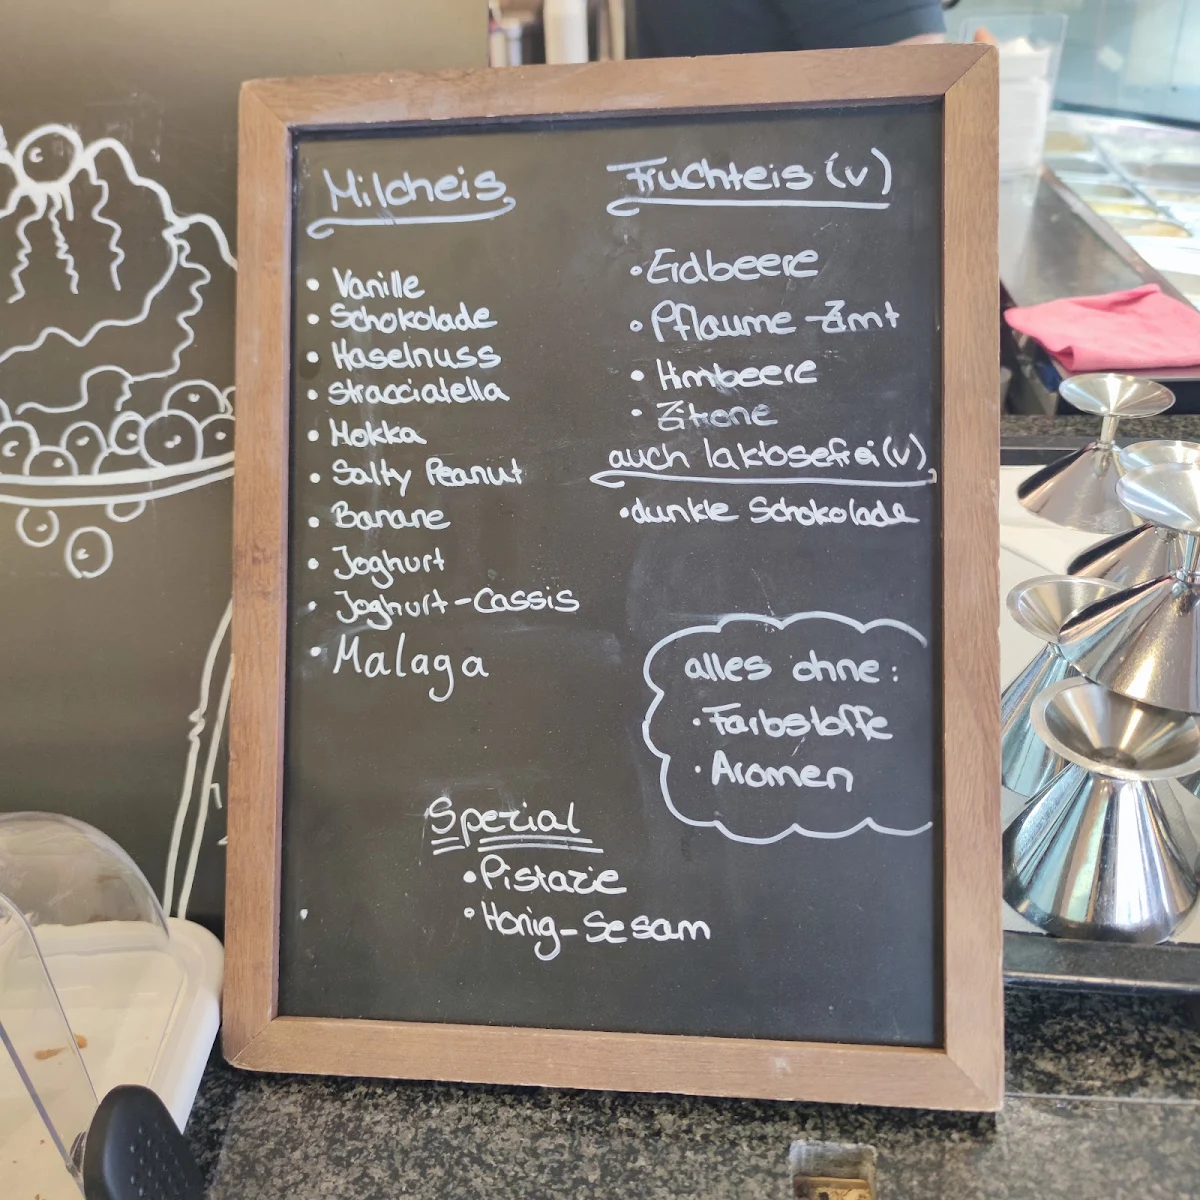 Milcheis
• Vanille
• Schokolade
• Haselnuss
• Stracciatella
• Mokka
• Salty Peanut
• Banane
• Joghurt
• Joghurt-Cassis
• Malaga
Fruchteis (v)
• Erdbeere
• Pflaume-Zimt
• Himbeere
• Zitrone
auch laktosefrei (v)
• dunkle Schokolade
alles ohne:
• Farbstoffe
• Aromen
Spezial
• Pistazie
• Honig-Sesam